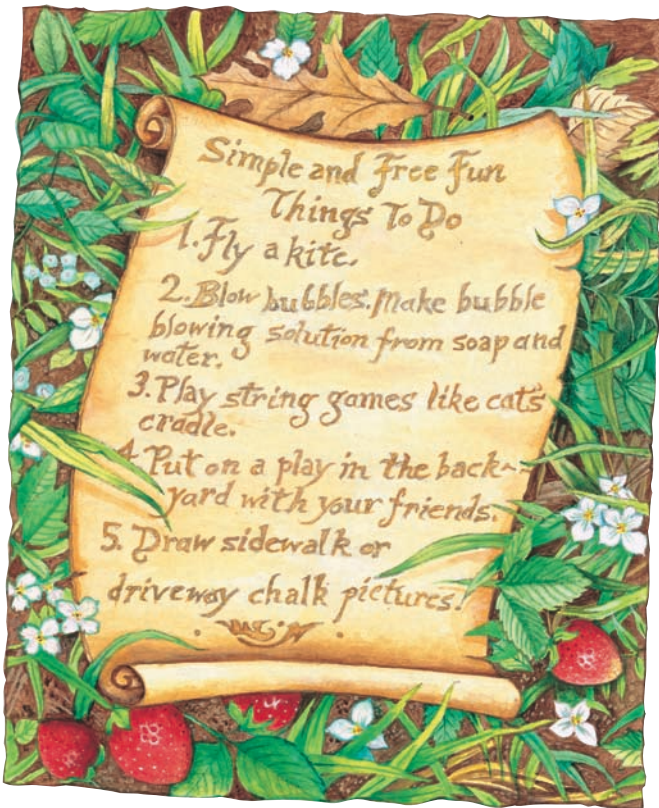 Simple and Free Fun
Things To Do
1. Fly a kite.
2. Blow bubbles. Make bubble
blowing solution from soap and
water.
3. Play string games like cat's
cradle.
4. Put on a play in the back-
yard with your friends.
5. Draw sidewalk or
driveway chalk pictures!